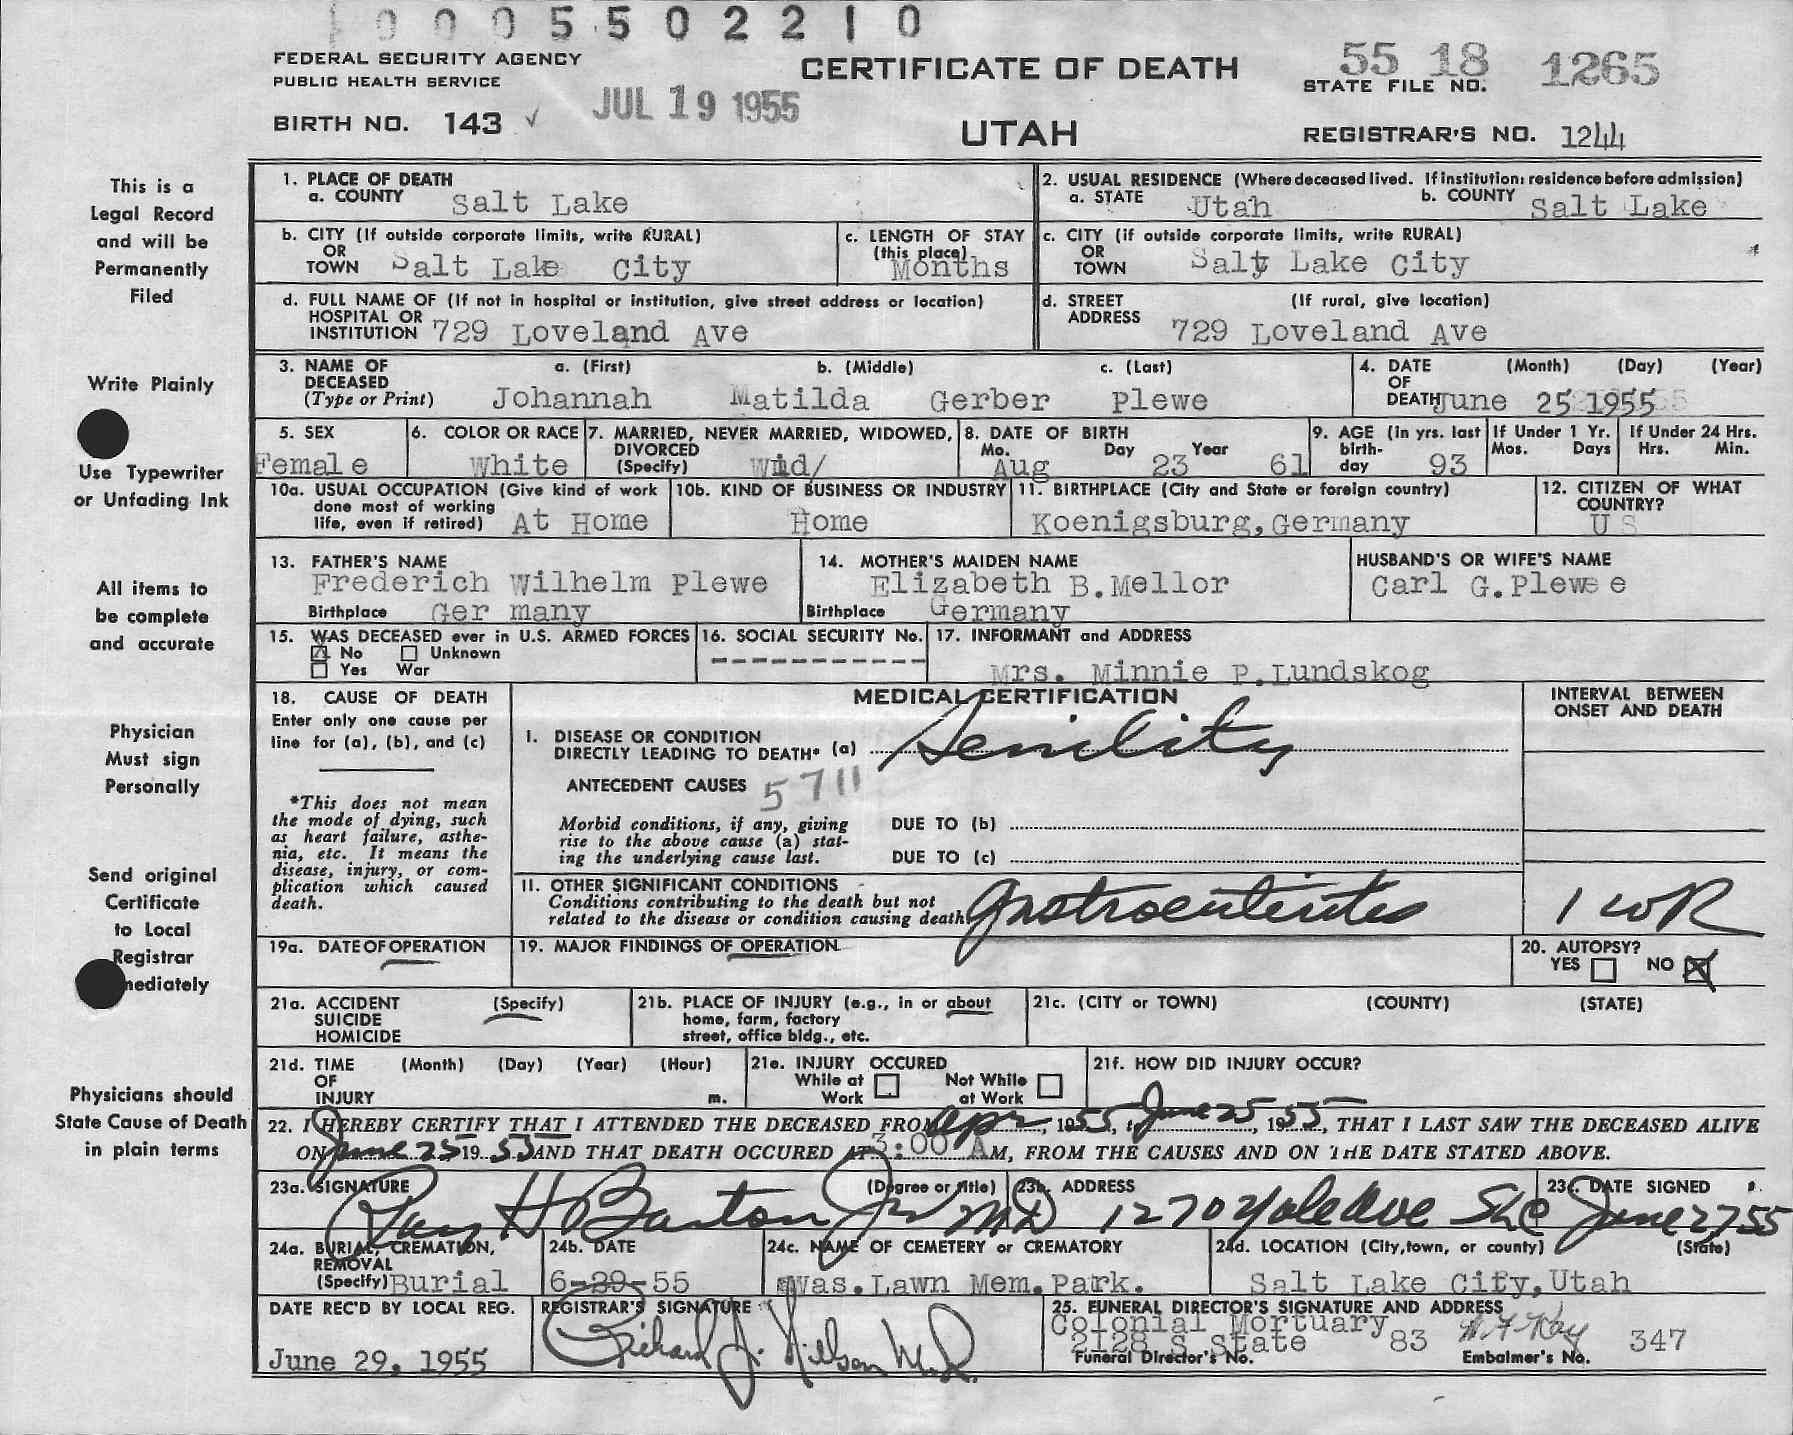 0 0 0 5 5 0 2 2 1 0
FEDERAL SECURITY AGENCY
PUBLIC HEALTH SERVICE
CERTIFICATE OF DEATH
55 18 1265
STATE FILE NO.
BIRTH NO. 143 ✓
JUL 19 1955
UTAH
REGISTRAR'S NO. 1244
This is a
Legal Record
and will be
Permanently
Filed
Write Plainly
Use Typewriter
or Unfading Ink
All items to
be complete
and accurate
Physician
Must sign
Personally
Send original
Certificate
to Local
Registrar
mediately
Physicians should
State Cause of Death
in plain terms
1. PLACE OF DEATH
a. COUNTY Salt Lake
2. USUAL RESIDENCE (Where deceased lived. If institution: residence before admission)
a. STATE Utah b. COUNTY Salt Lake
b. CITY (If outside corporate limits, write RURAL)
OR
TOWN Salt Lake City
c. LENGTH OF STAY
(this place)
Months
c. CITY (if outside corporate limits, write RURAL)
OR
TOWN Salt Lake City
d. FULL NAME OF (If not in hospital or institution, give street address or location)
HOSPITAL OR
INSTITUTION 729 Loveland Ave
d. STREET (If rural, give location)
ADDRESS 729 Loveland Ave
3. NAME OF a. (First) b. (Middle) c. (Last)
DECEASED
(Type or Print) Johannah Matilda Gerber Plewe
4. DATE (Month) (Day) (Year)
OF
DEATH June 25 1955
5. SEX
Female
6. COLOR OR RACE
White
7. MARRIED, NEVER MARRIED, WIDOWED,
DIVORCED
(Specify) Wid/
8. DATE OF BIRTH
Mo. Day Year
Aug 23 61
9. AGE (In yrs. last
birth-
day 93
If Under 1 Yr.
Mos. Days
If Under 24 Hrs.
Hrs. Min.
10a. USUAL OCCUPATION (Give kind of work
done most of working
life, even if retired) At Home
10b. KIND OF BUSINESS OR INDUSTRY
Home
11. BIRTHPLACE (City and State or foreign country)
Koenigsburg, Germany
12. CITIZEN OF WHAT
COUNTRY?
US
13. FATHER'S NAME
Frederich Wilhelm Plewe
Birthplace Ger many
14. MOTHER'S MAIDEN NAME
Elizabeth B.Mellor
Birthplace Germany
HUSBAND'S OR WIFE'S NAME
Carl G.Plewe e
15. WAS DECEASED ever in U.S. ARMED FORCES
No Unknown
Yes War
16. SOCIAL SECURITY No.
-----------
17. INFORMANT and ADDRESS
Mrs. Minnie P.Lundskog
18. CAUSE OF DEATH
Enter only one cause per
line for (a), (b), and (c)
*This does not mean
the mode of dying, such
as heart failure, asthe-
nia, etc. It means the
disease, injury, or com-
plication which caused
death.
MEDICAL CERTIFICATION
I. DISEASE OR CONDITION
DIRECTLY LEADING TO DEATH* (a) Senility
ANTECEDENT CAUSES 5711
Morbid conditions, if any, giving
rise to the above cause (a) stat-
ing the underlying cause last.
DUE TO (b)
DUE TO (c)
II. OTHER SIGNIFICANT CONDITIONS
Conditions contributing to the death but not
related to the disease or condition causing death Gastroenteritis
INTERVAL BETWEEN
ONSET AND DEATH
1 wk
19a. DATE OF OPERATION
19. MAJOR FINDINGS OF OPERATION
20. AUTOPSY?
YES NO X
21a. ACCIDENT (Specify)
SUICIDE
HOMICIDE
21b. PLACE OF INJURY (e.g., in or about
home, farm, factory
street, office bldg., etc.
21c. (CITY or TOWN) (COUNTY) (STATE)
21d. TIME (Month) (Day) (Year) (Hour)
OF
INJURY m.
21e. INJURY OCCURED
While at Work Not While at Work
21f. HOW DID INJURY OCCUR?
22. I HEREBY CERTIFY THAT I ATTENDED THE DECEASED FROM Apr, 1955, to June 25, 1955, THAT I LAST SAW THE DECEASED ALIVE
ON June 25 1955 AND THAT DEATH OCCURED AT 3:00 AM, FROM THE CAUSES AND ON THE DATE STATED ABOVE.
23a. SIGNATURE (Degree or title)
Ray H Barton Jr MD
23b. ADDRESS
1270 Yale Ave SLC
23c. DATE SIGNED
June 27 55
24a. BURIAL, CREMATION,
REMOVAL
(Specify) Burial
24b. DATE
6-29-55
24c. NAME OF CEMETERY or CREMATORY
Was.Lawn Mem.Park.
24d. LOCATION (City, town, or county) (State)
Salt Lake City, Utah
DATE REC'D BY LOCAL REG.
June 29, 1955
REGISTRAR'S SIGNATURE
Richard J. Nilson M.D.
25. FUNERAL DIRECTOR'S SIGNATURE AND ADDRESS
Colonial Mortuary
2128 S State 83 347
Funeral Director's No. Embalmer's No.